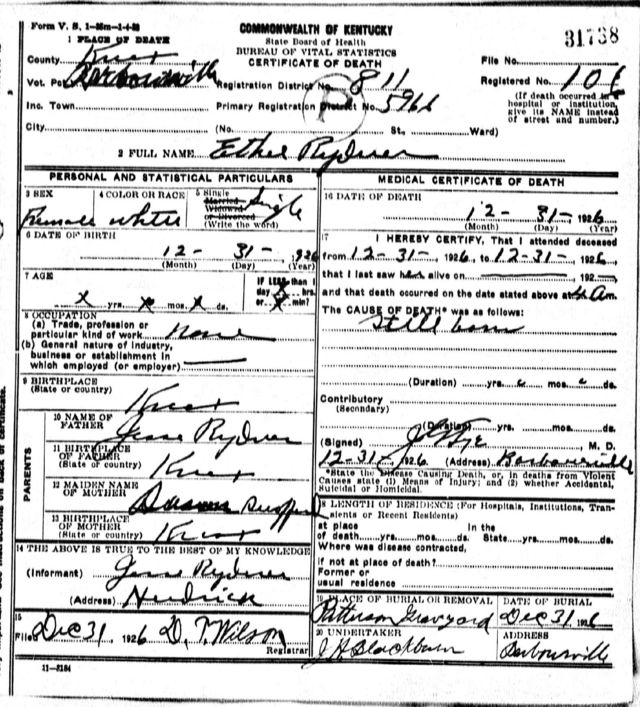 Form V. S. 1-35m-1-4-26
COMMONWEALTH OF KENTUCKY
State Board of Health
BUREAU OF VITAL STATISTICS
CERTIFICATE OF DEATH
31738
1 PLACE OF DEATH
County Knox
Vot. Pct. Barbourville
Inc. Town
City
Registration District No. 811
Primary Registration District No. 5966
(No. St., Ward)
File No.
Registered No. 106
(If death occurred in
hospital or institution,
give its NAME instead
of street and number.)
2 FULL NAME Ethel Rydner
PERSONAL AND STATISTICAL PARTICULARS
3 SEX
Female
4 COLOR OR RACE
white
5 Single
Married
Widowed
or Divorced
(Write the word)
Single
6 DATE OF BIRTH
12- 31- 1926
(Month) (Day) (Year)
7 AGE
x yrs. x mos. x ds.
If LESS than 1
day hrs.
or min?
8 OCCUPATION
(a) Trade, profession or
particular kind of work none
(b) General nature of industry,
business or establishment in
which employed (or employer)
9 BIRTHPLACE
(State or country)
Knox
PARENTS
10 NAME OF
FATHER
Jesse Rydner
11 BIRTHPLACE
OF FATHER
(State or country)
Knox
12 MAIDEN NAME
OF MOTHER
13 BIRTHPLACE
OF MOTHER
(State or country)
Knox
14 THE ABOVE IS TRUE TO THE BEST OF MY KNOWLEDGE
(Informant) Jesse Rydner
(Address) Hendrick
15
Filed Dec 31, 1926 D. T. Wilson
Registrar
11-3184
MEDICAL CERTIFICATE OF DEATH
16 DATE OF DEATH
12- 31- 1926
(Month) (Day) (Year)
17 I HEREBY CERTIFY, That I attended deceased
from 12-31-, 1926, to 12-31-, 1926,
that I last saw h alive on , 192
and that death occurred on the date stated above at Am.
The CAUSE OF DEATH* was as follows:
Still born
(Duration) yrs. mos. ds.
Contributory
(Secondary)
(Duration)
(Signed) M. D.
12-31-, 1926 (Address) Barbourville
*State the Disease Causing Death, or, in deaths from Violent
Causes state (1) Means of Injury; and (2) whether Accidental,
Suicidal or Homicidal.
18 LENGTH OF RESIDENCE (For Hospitals, Institutions, Tran-
sients or Recent Residents)
at place In the
of death yrs. mos. ds. State yrs. mos. ds.
Where was disease contracted,
if not at place of death?
Former or
usual residence
19 PLACE OF BURIAL OR REMOVAL
Patterson Graveyard
DATE OF BURIAL
Dec 31, 1926
20 UNDERTAKER
J H Blackburn
ADDRESS
Barbourville